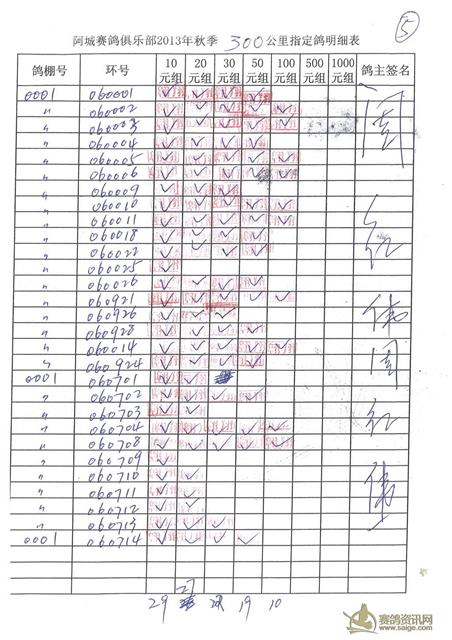 ⑤
阿城赛鸽俱乐部2013年秋季 300公里指定鸽明细表
鸽棚号 环号 10元组 20元组 30元组 50元组 100元组 500元组 1000元组 鸽主签名
0001 060001 ✓ ✓ ✓ ✓
〃 060002 ✓ ✓ ✓ ✓ ✓
〃 060003 ✓ ✓ ✓ ✓ ✓
〃 060004 ✓ ✓ ✓ ✓
〃 060005 ✓ ✓ ✓ ✓ ✓
〃 060006 ✓ ✓ ✓ ✓ ✓
〃 060009 ✓ ✓ ✓
〃 060010 ✓ ✓ ✓ ✓ ✓
〃 060011 ✓ ✓ ✓ ✓ ✓
〃 060018 ✓ ✓ ✓ ✓
〃 060022 ✓ ✓ ✓ ✓
〃 060025 ✓
〃 060026 ✓ ✓ ✓ ✓
〃 060921 ✓ ✓ ✓ ✓ ✓
〃 060926 ✓ ✓ ✓
〃 060928 ✓ ✓ ✓ ✓
〃 060014 ✓ ✓ ✓ ✓ ✓
〃 060924 ✓ ✓ ✓ ✓
0001 060701 ✓ ✓
〃 060702 ✓ ✓ ✓ ✓
〃 060703 ✓ ✓
〃 060704 ✓ ✓ ✓ ✓ ✓
〃 060708 ✓ ✓ ✓ ✓ ✓
〃 060709 ✓
〃 060710 ✓ ✓
〃 060711 ✓ ✓
〃 060712 ✓ ✓
〃 060713 ✓ ✓ ✓
0001 060714 ✓ ✓ ✓ ✓
周红伟
周红伟
29 27 19 10
赛鸽资讯网
www.saige.com